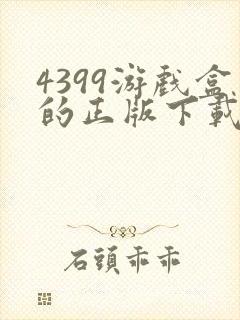 4399游戲盒
的正版下載
石頭乖乖